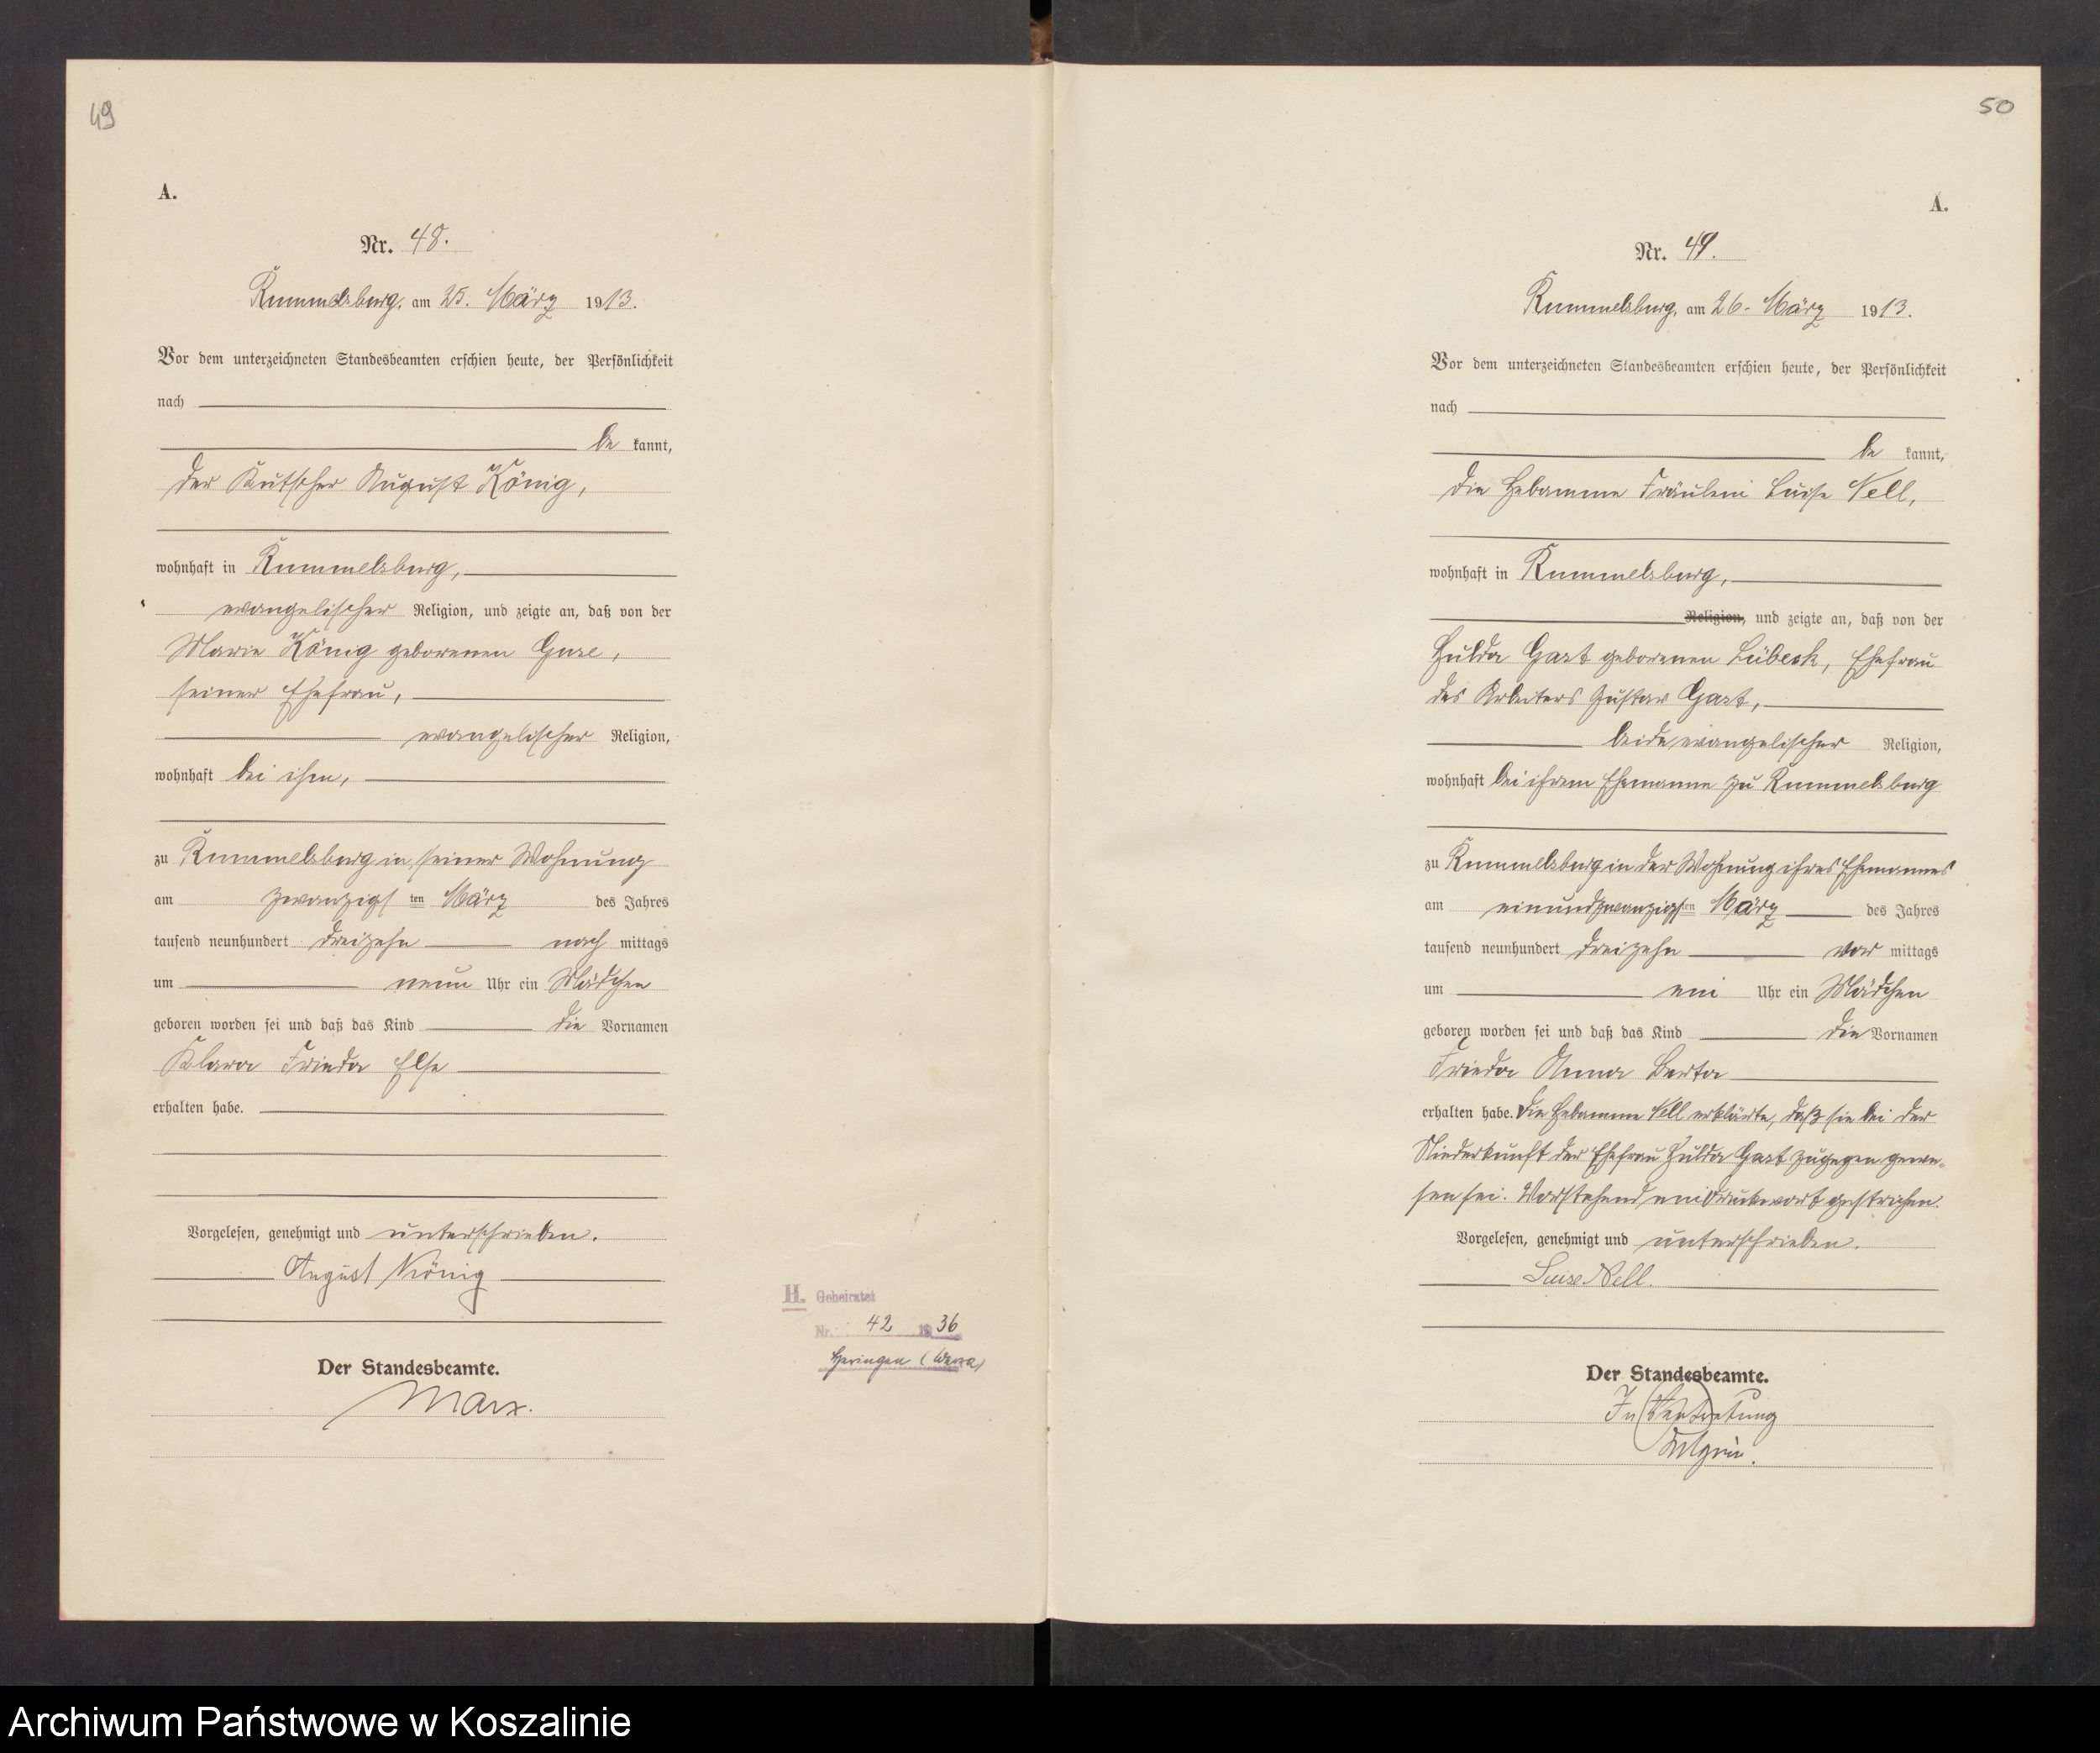 49
A.
Nr. 48.
Rummelsburg, am 25. März 1913.
Vor dem unterzeichneten Standesbeamten erschien heute, der Persönlichkeit
nach
be kannt,
der Kutscher August König,
wohnhaft in Rummelsburg,
evangelischer Religion, und zeigte an, daß von der
Marie König geborenen Guse,
seiner Ehefrau,
evangelischer Religion,
wohnhaft bei ihm,
zu Rummelsburg in seiner Wohnung
am zwanzigsten März des Jahres
tausend neunhundert dreizehn nach mittags
um neun Uhr ein Mädchen
geboren worden sei und daß das Kind die Vornamen
Klara Frieda Else
erhalten habe.
Vorgelesen, genehmigt und unterschrieben.
August König
Der Standesbeamte.
Marx.
H. Geheiratet
Nr. 42 1936
Heringen (Werra)
50
A.
Nr. 49.
Rummelsburg, am 26. März 1913.
Vor dem unterzeichneten Standesbeamten erschien heute, der Persönlichkeit
nach
be kannt,
die Hebamme Fräulein Luise Nell,
wohnhaft in Rummelsburg,
Religion, und zeigte an, daß von der
Hulda Gast geborenen Lübeck, Ehefrau
des Arbeiters Gustav Gast,
beide evangelischer Religion,
wohnhaft bei ihrem Ehemanne zu Rummelsburg
zu Rummelsburg in der Wohnung ihres Ehemannes
am einundzwanzigsten März des Jahres
tausend neunhundert dreizehn vor mittags
um ein Uhr ein Mädchen
geboren worden sei und daß das Kind die Vornamen
Frieda Anna Berta
erhalten habe. Die Hebamme Nell erklärte, daß sie bei der
Niederkunft der Ehefrau Hulda Gast zugegen gewe-
sen sei. Vorstehend ein Druckwort gestrichen.
Vorgelesen, genehmigt und unterschrieben.
Luise Nell.
Der Standesbeamte.
In Vertretung
Archiwum Państwowe w Koszalinie